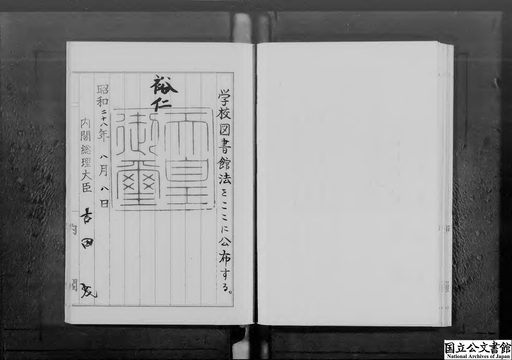 学校図書館法をここに公布する。
裕仁
天皇御璽
昭和二十八年八月八日
内閣総理大臣 吉田茂
内閣
国立公文書館
National Archives of Japan